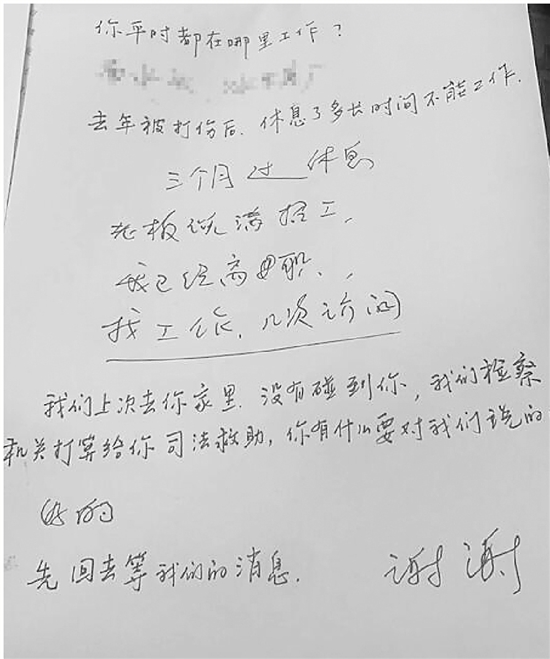 你平时都在哪里工作？
去年被打伤后，休息了多长时间不能工作.
三个月过 休息
老板说满招工,
我已经离职.,
找工作. 几次访问
我们上次去你家里. 没有碰到你, 我们检察
机关打算给你司法救助, 你有什么要对我们说的
好的
先回去等我们的消息. 谢谢